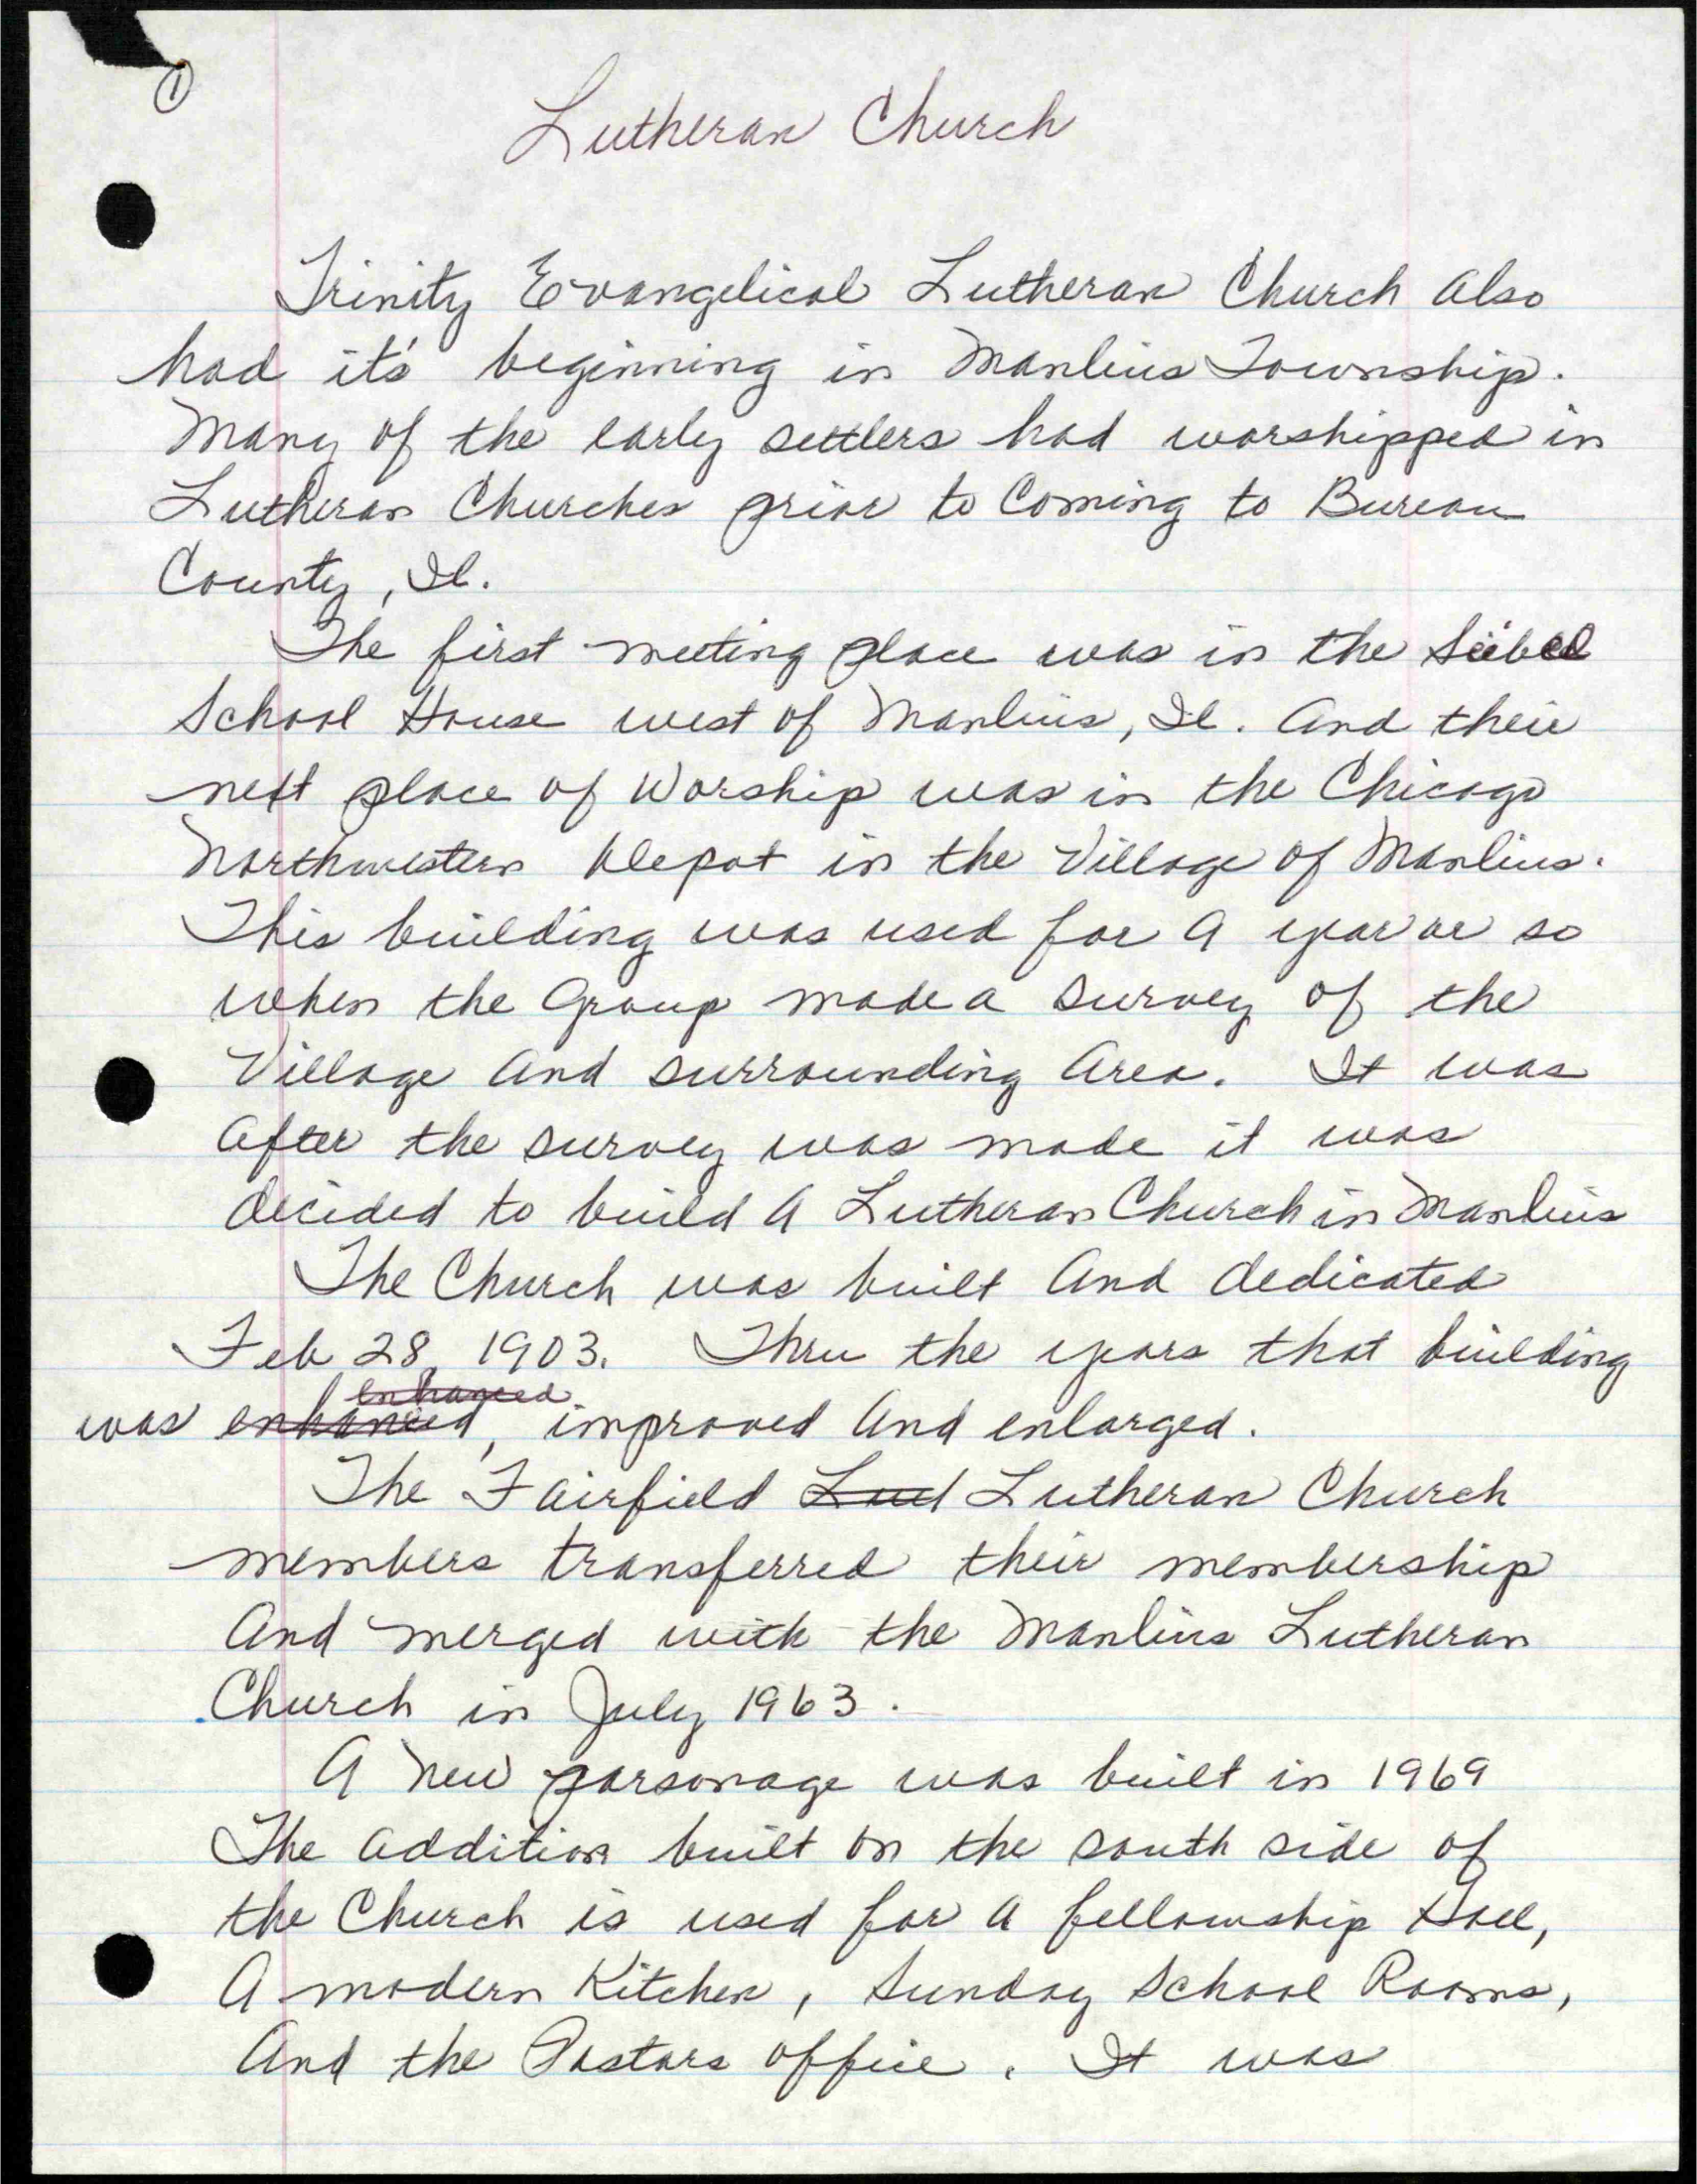 1
Lutheran Church
Trinity Evangelical Lutheran Church Also
had it's beginning in Manlius Township.
Many of the early settlers had worshipped in
Lutheran Churches prior to Coming to Bureau
County, Il.
The first meeting place was in the
School House west of Manlius, Il. And their
next place of Worship was in the Chicago
Northwestern Depot in the Village of Manlius.
This building was used for A year or so
when the Group made a survey of the
Village And surrounding Area. It was
After the survey was made it was
decided to build A Lutheran Church in Manlius
The Church was built And dedicated
Feb 28, 1903. Thru the years that building
enhanced
was enhanced, improved And enlarged.
The Fairfield Lutheran Church
members transferred their membership
And merged with the Manlius Lutheran
Church in July 1963.
A New parsonage was built in 1969
The Addition built on the south side of
the Church is used for A fellowship Hall,
A modern Kitchen, Sunday School Rooms,
And the Pastors office. It was